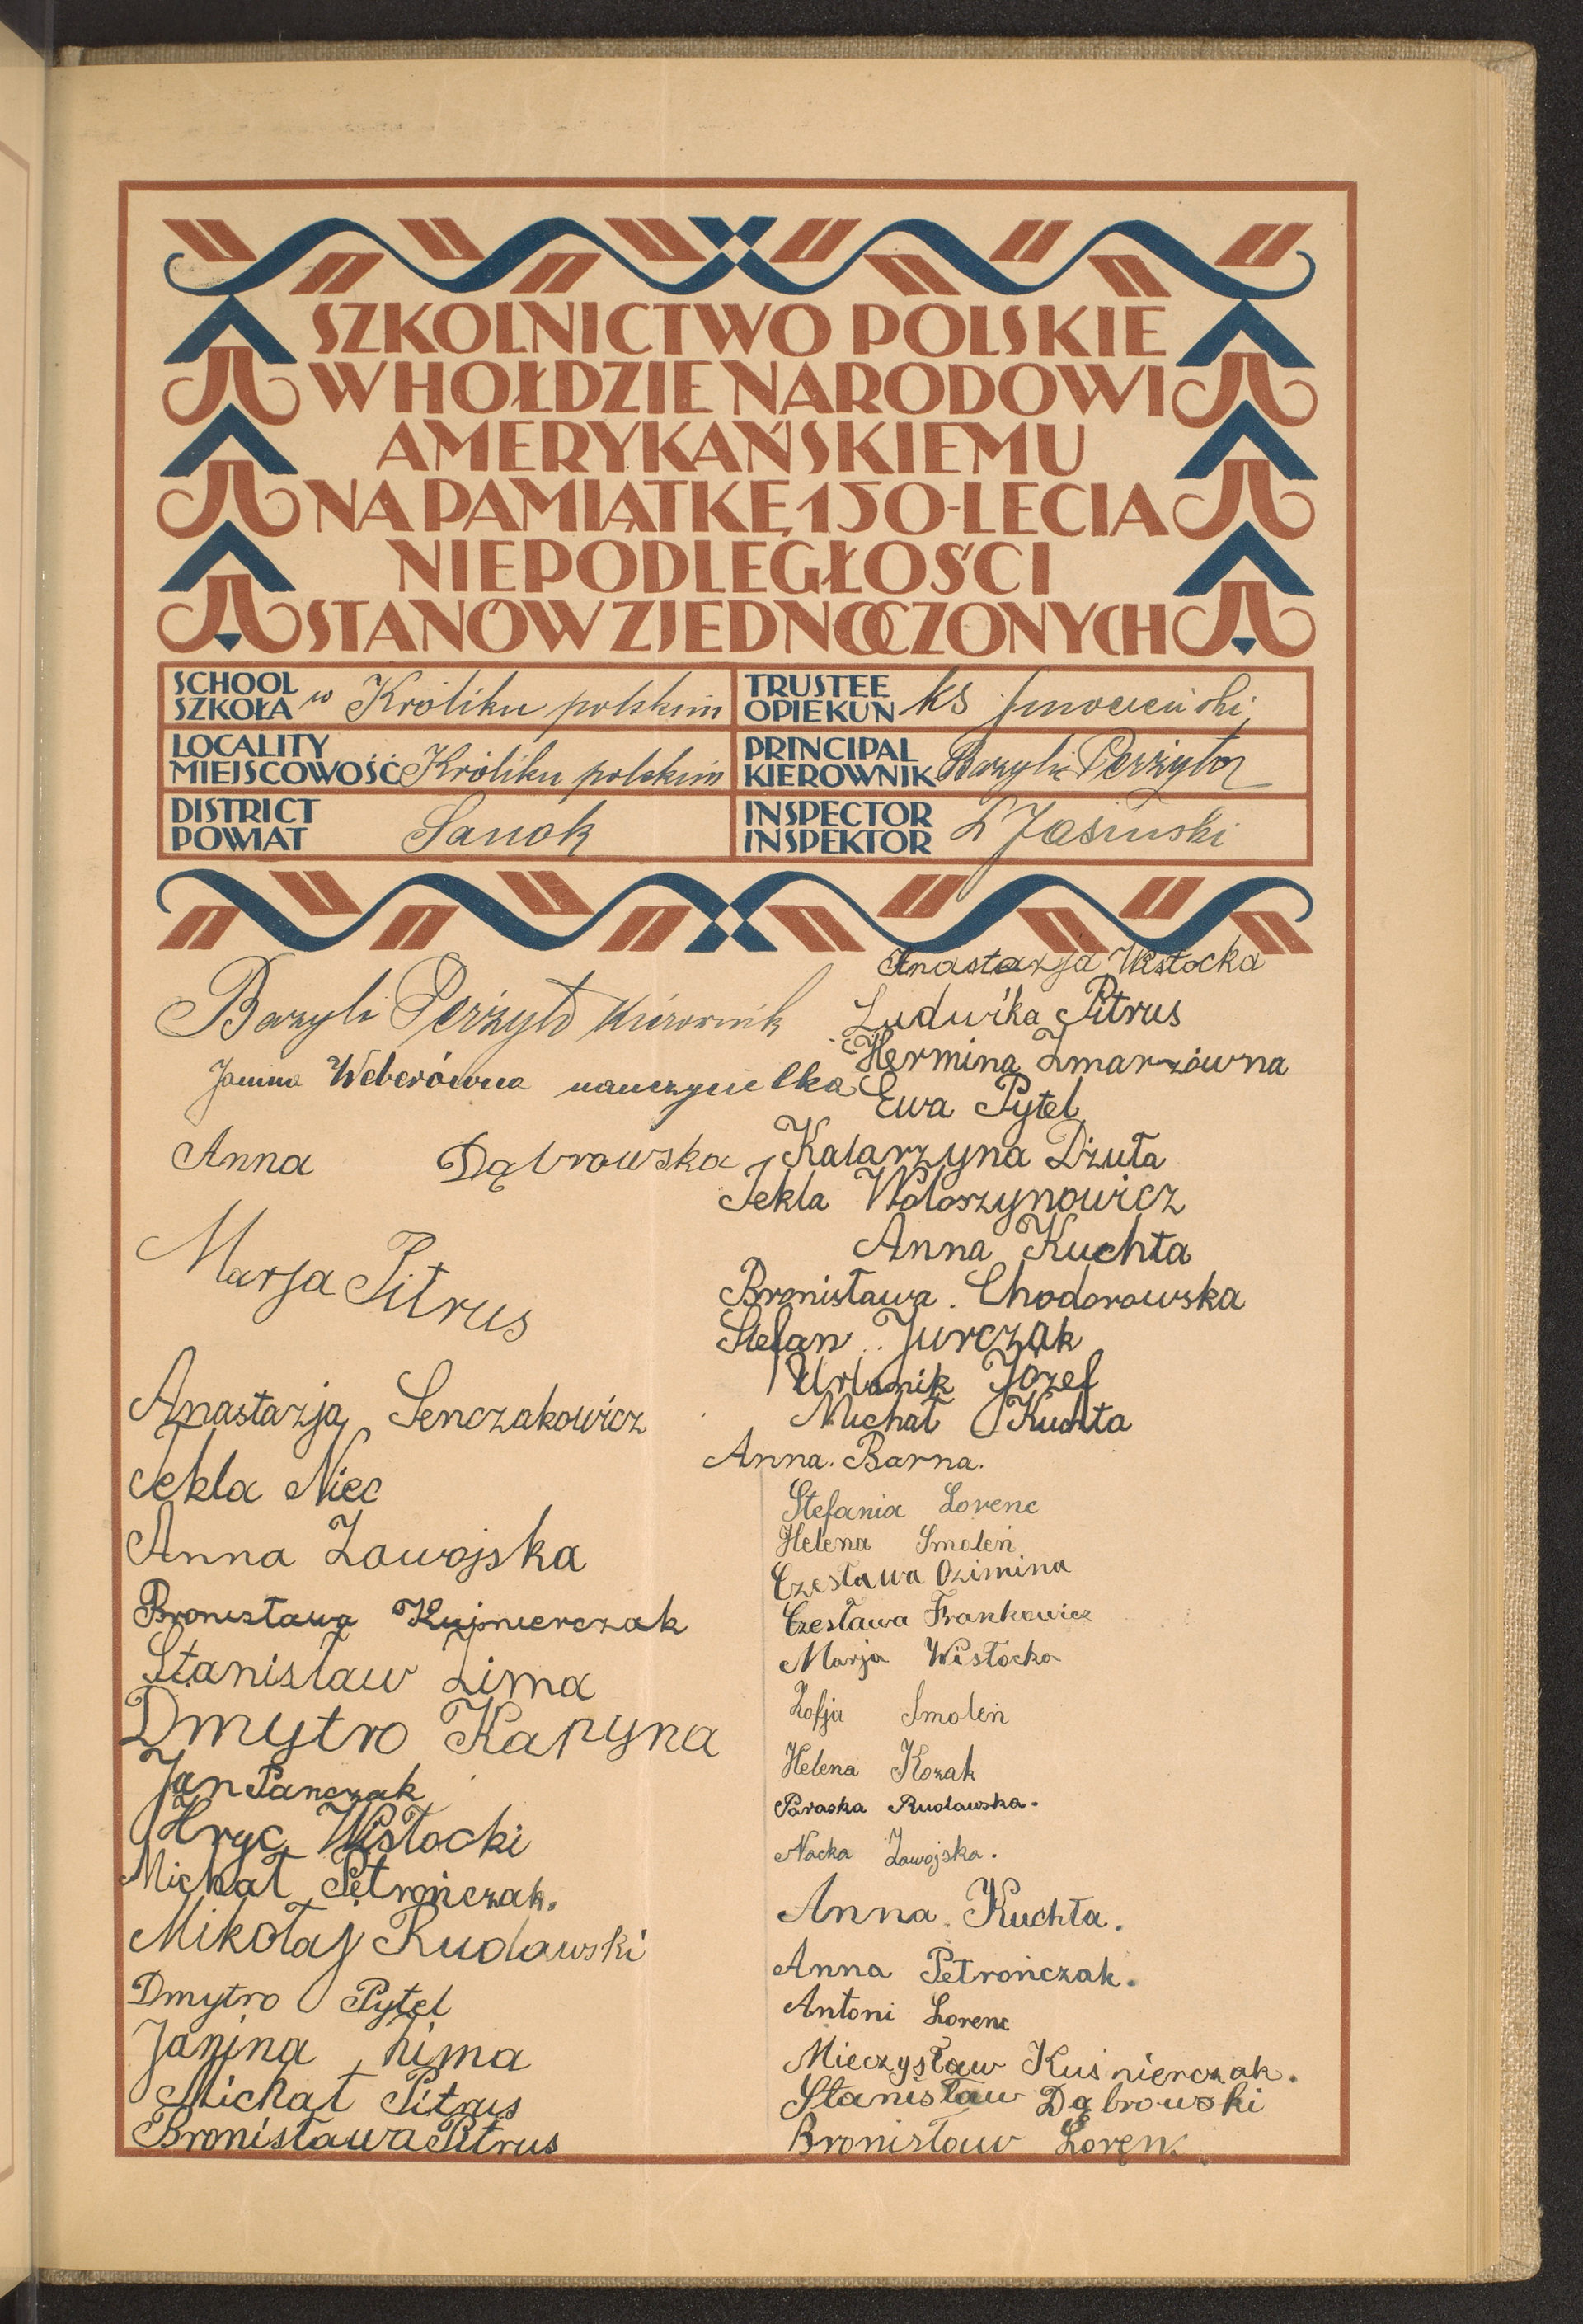 SZKOLNICTWO POLSKIE
W HOŁDZIE NARODOWI
AMERYKAŃSKIEMU
NA PAMIĄTKĘ 150-LECIA
NIEPODLEGŁOŚCI
STANÓW ZJEDNOCZONYCH
SCHOOL
SZKOŁA w Króliku polskim
TRUSTEE
OPIEKUN ks
LOCALITY
MIEJSCOWOŚĆ Króliku polskim
PRINCIPAL
KIEROWNIK Bazyli Perżyło
DISTRICT
POWIAT Sanok
INSPECTOR
INSPEKTOR L Jasiński
Bazyli Perżyło kierownik
Janina Weberówna nauczycielka
Anna Dąbrowska
Marja Pitrus
Anastazja Senczakowicz
Tekla Niec
Anna Zawojska
Bronisława Kuśnierczak
Stanisław Zima
Dmytro Kapyna
Jan Panczak
Hryc Wisłocki
Michał Petrończak.
Mikołaj Rudawski
Dmytro Pytel
Janina Zima
Michał Pitrus
Bronisława Pitrus
Anastazja Wisłocka
Ludwika Pitrus
Hermina Zmarzówna
Ewa Pytel
Katarzyna Dżuła
Tekla Wołoszynowicz
Anna Kuchta
Bronisława. Chodorowska
Stefan Jurczak
Urbanik Józef
Michał Kuchta
Anna. Barna.
Stefania Lorenc
Helena Smoleń
Czesława Ozimina
Czesława Frankowicz
Marja Wisłocka
Zofja Smoleń
Helena Kozak
Paraska Rudawska.
Nacka Zawojska.
Anna. Kuchta.
Anna Petrończak.
Antoni Lorenc
Mieczysław Kuśnierczak.
Stanisław Dąbrowski
Bronisław Lorenc